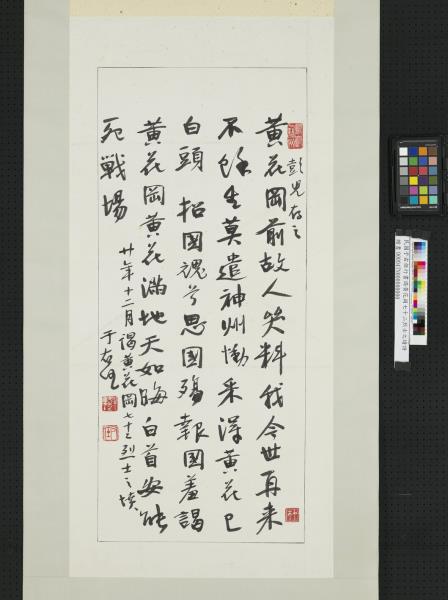 黄花岡前故人笑料我今世再来
彭児存之
不能生莫遣神州慟采得黄花已
白頭招國魂兮思國殤報國羞謁
黄花岡黄花滿地天如晦白首安能
死戰場
廿年十二月謁黄花岡七十二烈士之墳
于右任